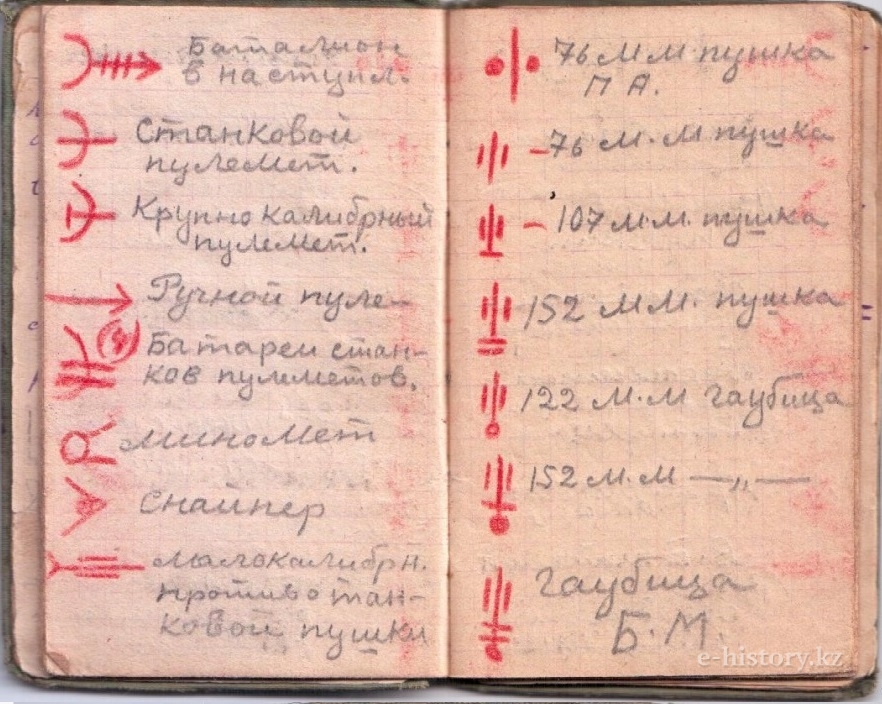 Баталион
в наступл.
Станковой
пулемет.
Крупно калибрный
пулемет.
Ручной пуле-
Батареи стан-
ков пулеметов.
миномет
снайпер
малокалибрн.
противотан-
ковой пушки
76 м.м пушка
П А.
-76 м.м пушка
-107 м.м. пушка
152 м.м. пушка
122 м.м гаубица
152 м.м —„—
гаубица
Б.М.
e-history.kz